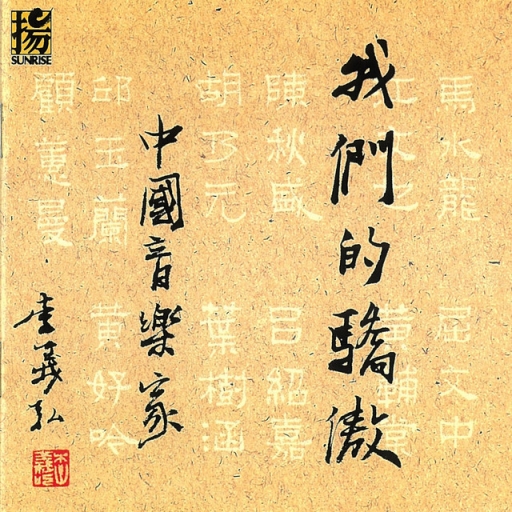 揚
SUNRISE
我們的驕傲
中國音樂家
李義弘
馬水龍
屈文中
江文也
黃輔棠
陳秋盛
呂紹嘉
胡乃元
葉樹涵
邱玉蘭
黃妤吟
顧蕙曼